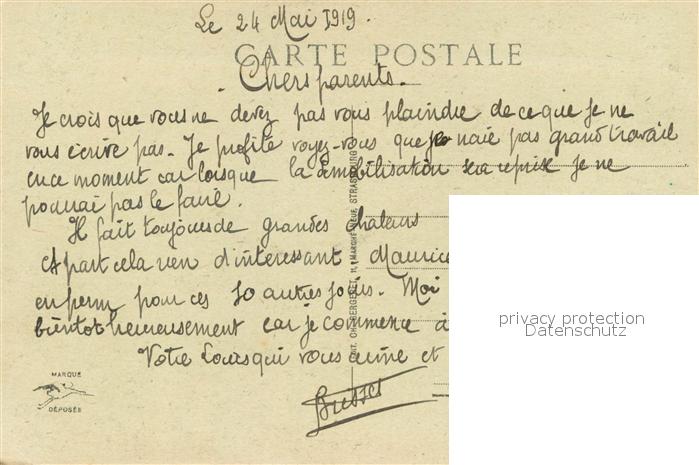 Le 24 Mai 1919.
CARTE POSTALE
Chers parents.
Je crois que vous ne devez pas vous plaindre de ce que je ne
vous écrive pas. Je profite voyez-vous que je naie pas grand travail
en ce moment car lorsque la démobilisation sera reprise je ne
pourrai pas le faire.
Il fait toujours de grandes chaleurs
A part cela rien d'intéressant Maurice
en perm pour ces 10 autres jours. Moi
bientot heureusement car je commence à
Votre Louis qui vous aime et
MARQUE
DÉPOSÉE
STRASBOURG
privacy protection
Datenschutz